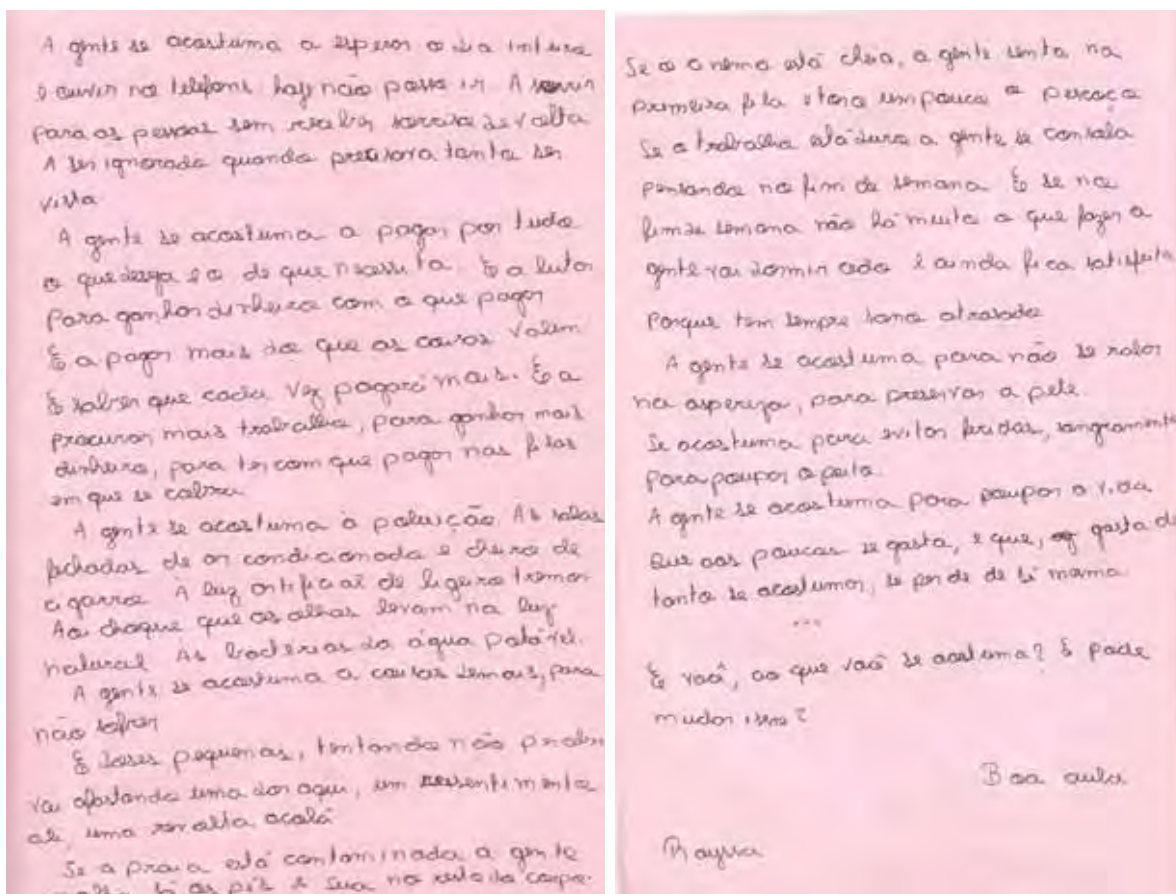 A gente se acostuma a esperar o dia inteiro
e ouvir no telefone: hoje não posso ir. A sorrir
para as pessoas sem receber sorriso de volta
A ser ignorado quando precisava tanto ser
visto
A gente se acostuma a pagar por tudo
o que deseja e o de que necessita. E a lutar
para ganhar dinheiro com o que pagar
E a pagar mais do que as coisas valem
E saber que cada vez pagará mais. E a
procurar mais trabalho, para ganhar mais
dinheiro, para ter com que pagar nas filas
em que se cobra
A gente se acostuma à poluição. As salas
fechadas de ar condicionado e cheiro de
cigarro À luz artificial de ligeiro tremor
Ao choque que os olhos levam na luz
natural As bactérias da água potável.
A gente se acostuma a coisas demais, para
não sofrer
E doses pequenas, tentando não
vai afastando uma dor aqui, um ressentimento
ali, uma revolta acolá
Se a praia está contaminada a gente
só os pés e sua no resto do corpo.
Se o cinema está cheio, a gente senta na
primeira fila e torce um pouco o pescoço
Se o trabalho está duro a gente se consola
pensando no fim de semana E se no
fim de semana não há muito o que fazer a
gente vai dormir cedo e ainda fica satisfeito
Porque tem sempre sono atrasado
A gente se acostuma para não se ralar
na aspereza, para preservar a pele.
Se acostuma para evitar feridas, sangramentos
Para poupar o peito.
A gente se acostuma para poupar a vida
Que aos poucos se gasta, e que, gasta de
tanto se acostumar, se perde de si mesma
...
E você, ao que você se acostuma? E pode
mudar isso?
Boa aula
Rayssa